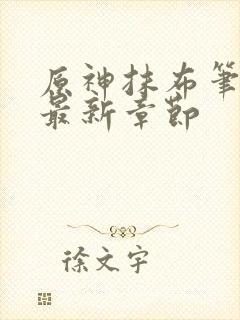 原神抹布笔
最新章節
徐文宇